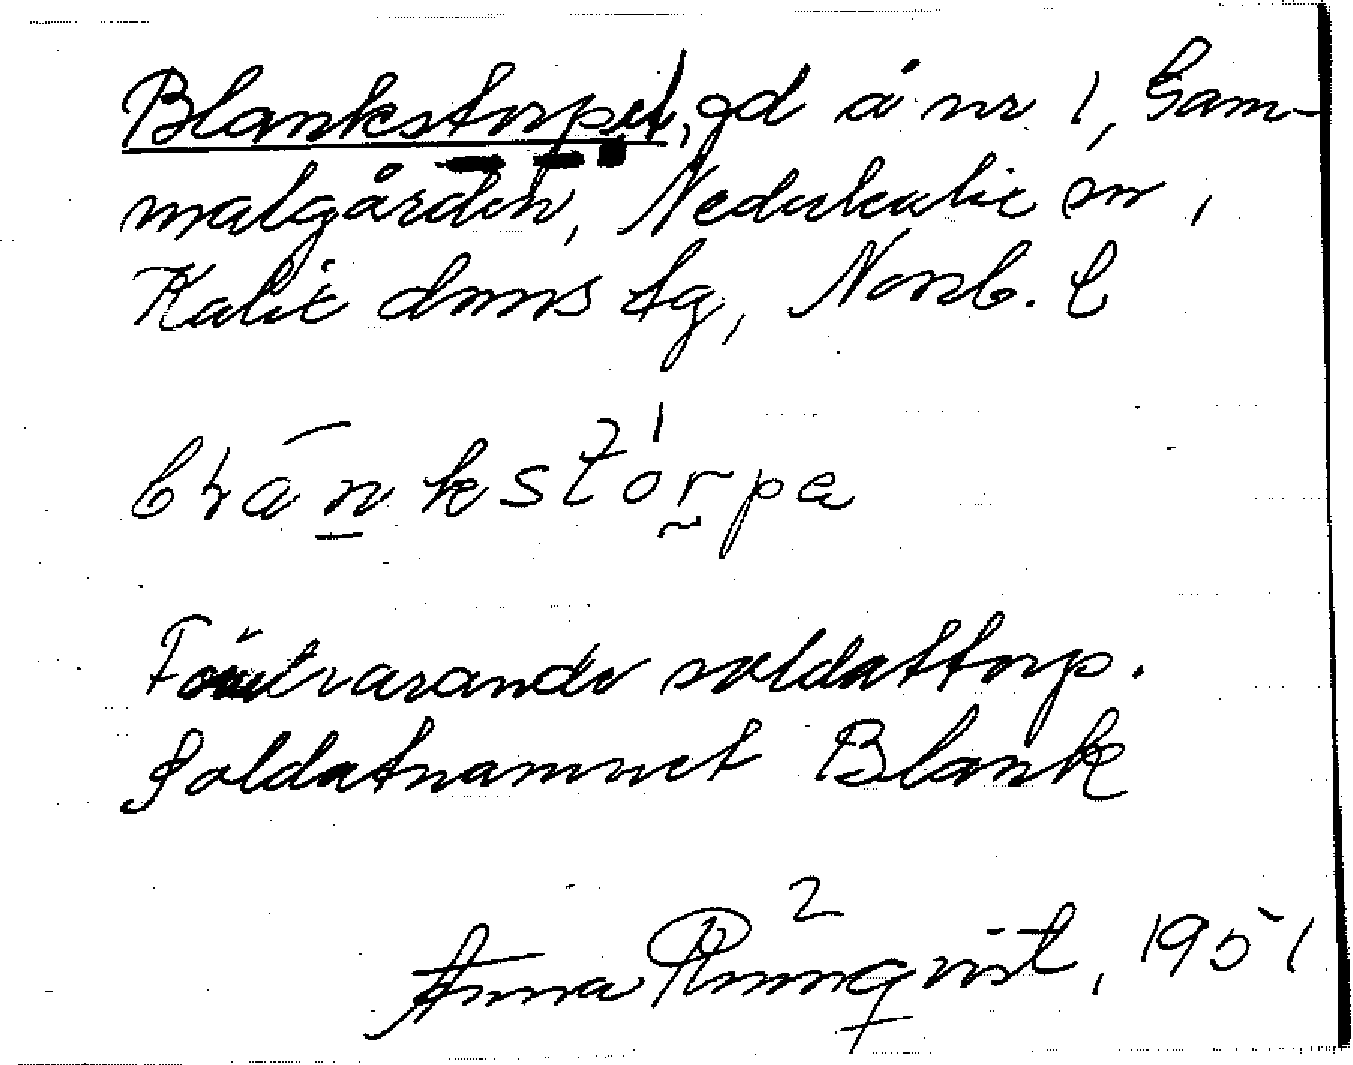 Blankstorpet, gd å nr 1, Gam-
malgården, Nederkalix sn,
Kalix dmns tg, Norrb. l
blānkstórpa
Förutvarande soldattorp.
Soldatnamnet Blank
2
Anna Rönnqvist, 1951